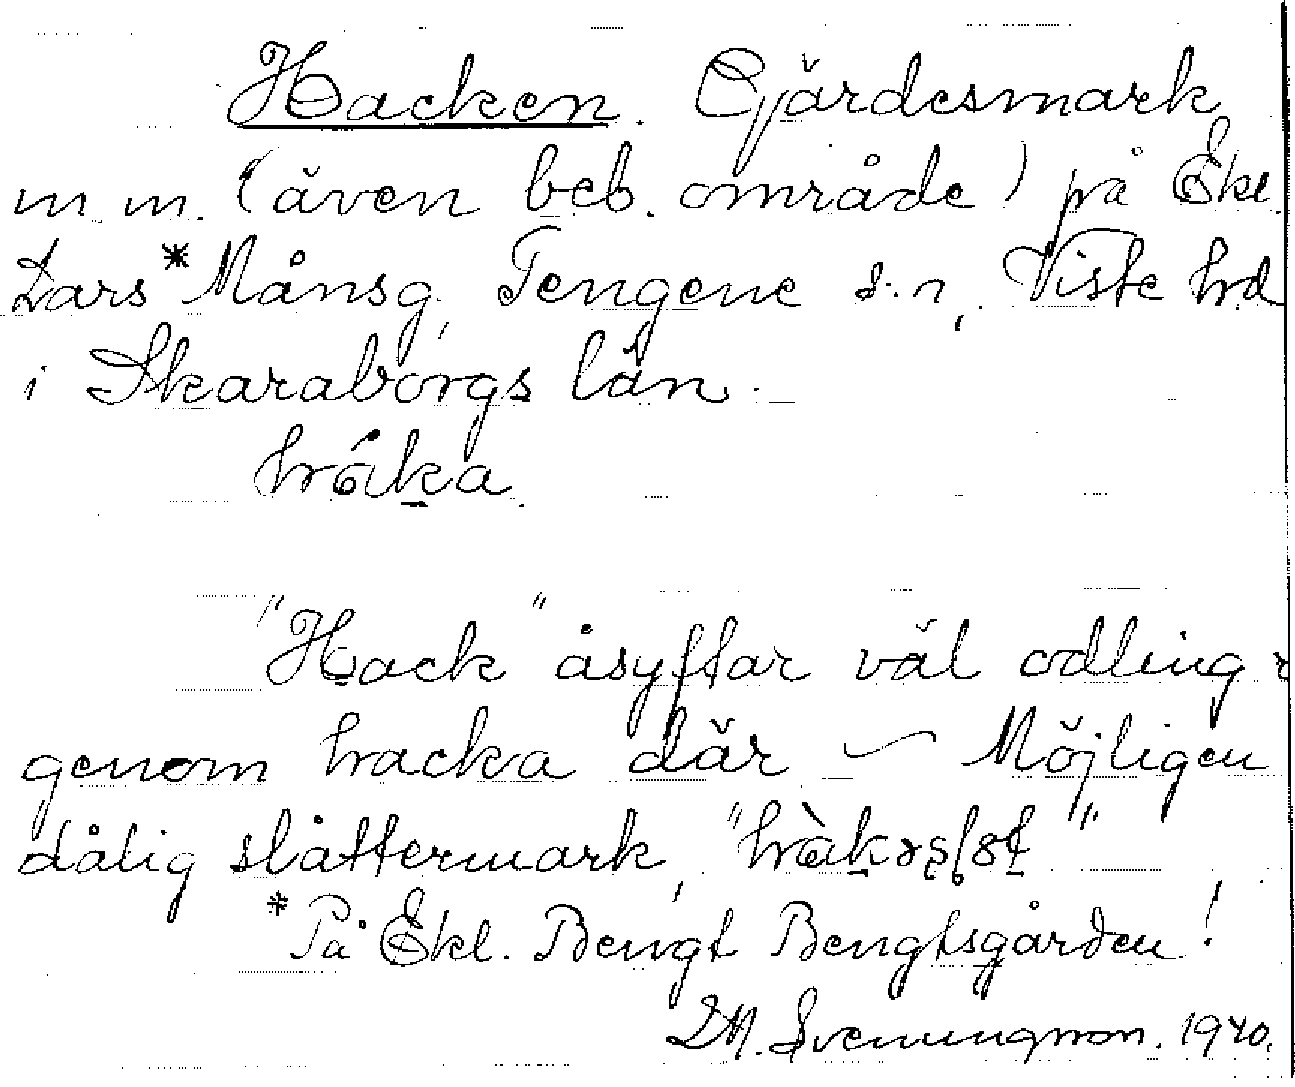 Hacken. Gjärdesmark
m.m. (även beb. område) på Ekl.
Lars* Månsg, Tengene s:n, Viste hd
i Skaraborgs län.
"Hack" åsyftar väl odling
genom hacka där – Möjligen
dålig slåttermark,
*På Ekl. Bengt Bengtsgården!
1940.